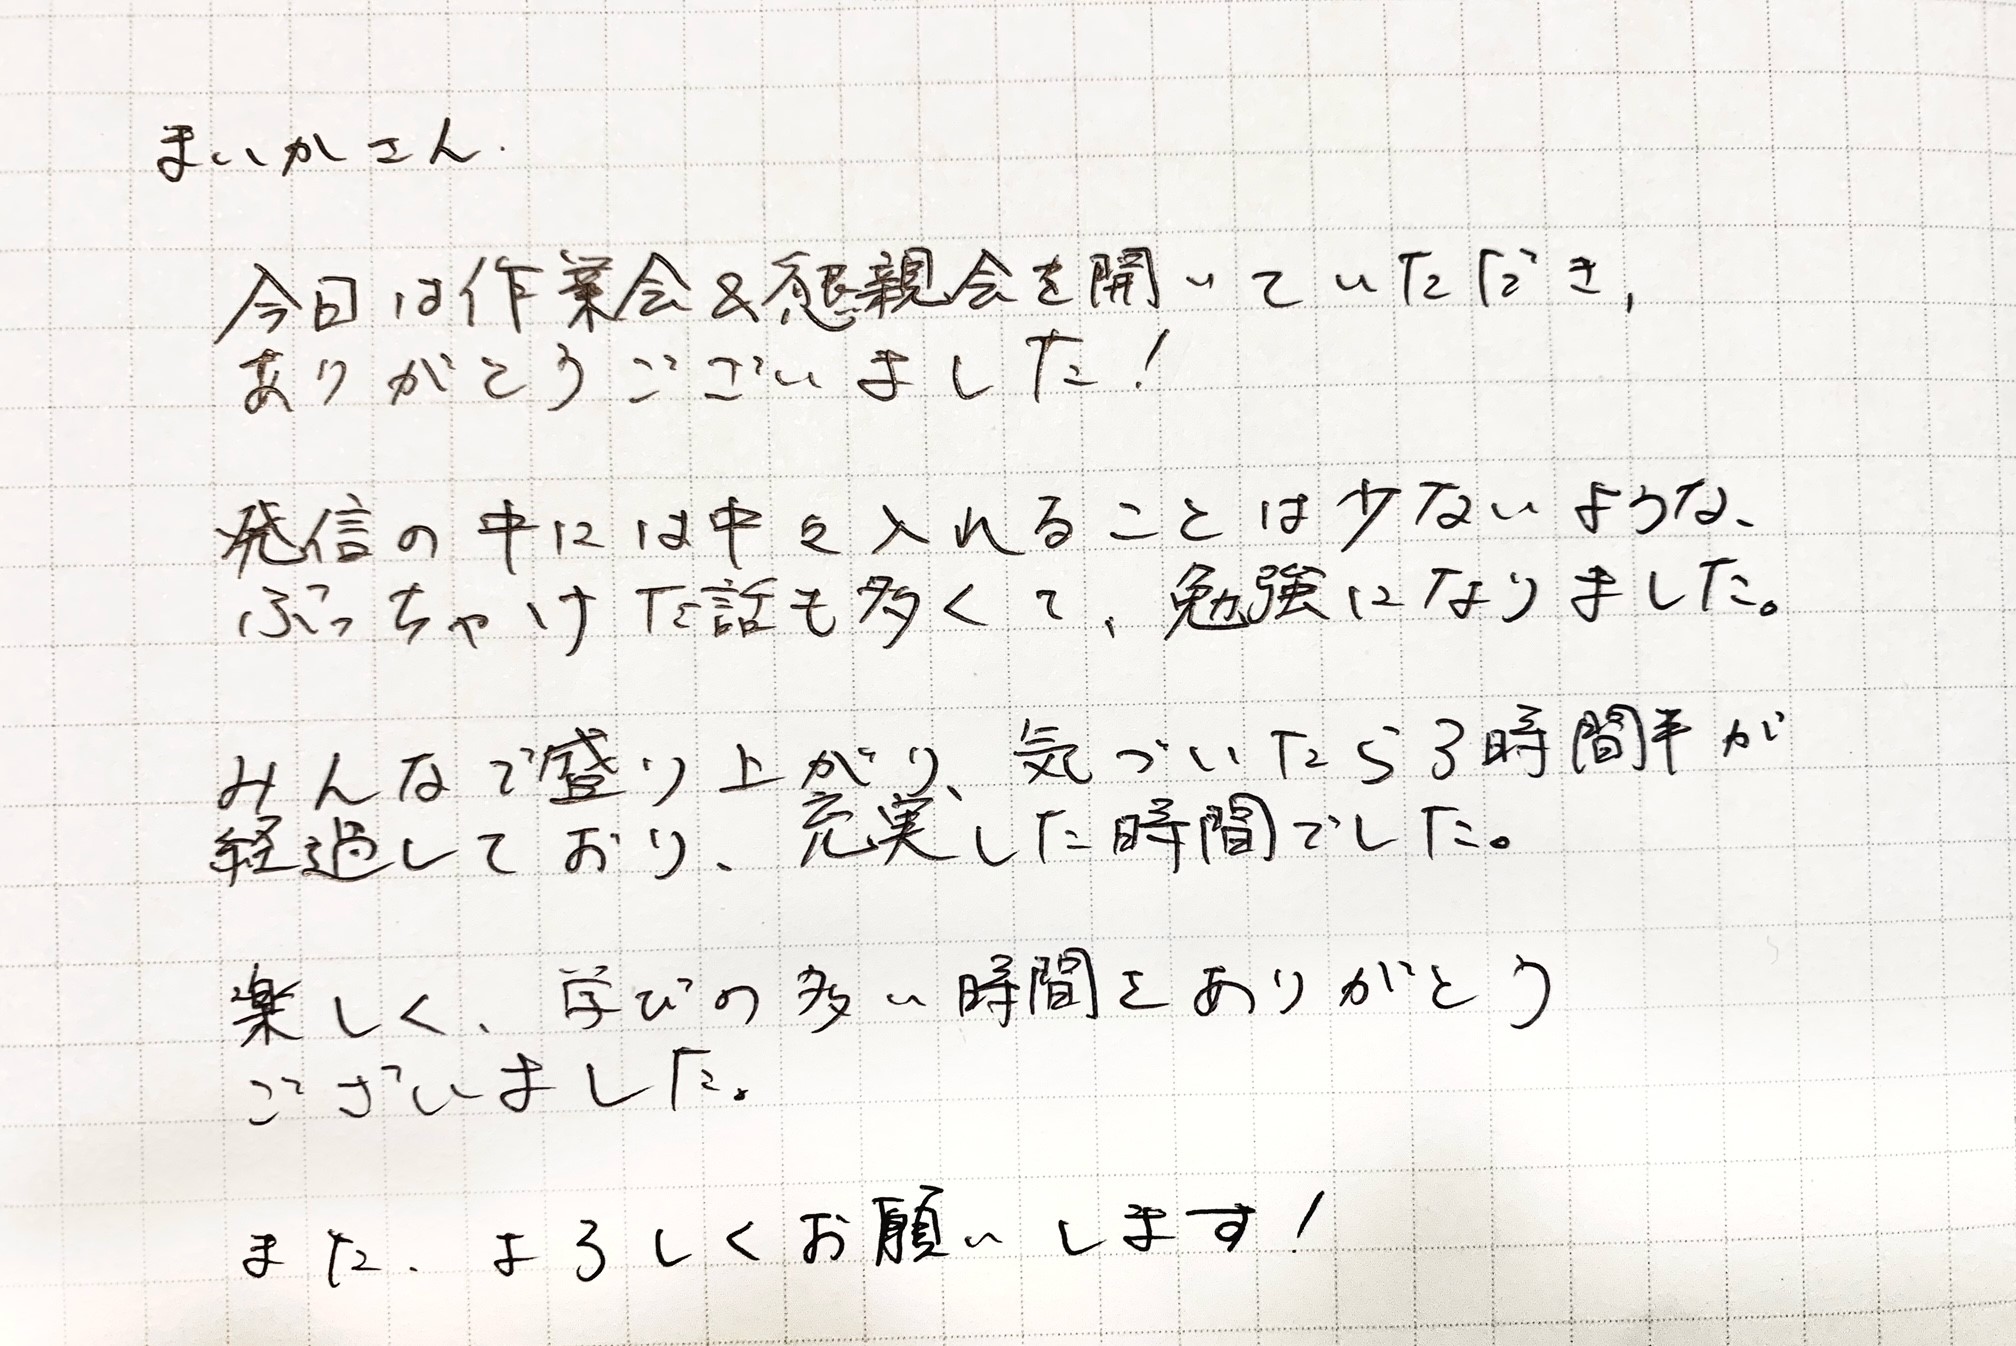 まいかさん.
今日は作業会&懇親会を開いていただき,
ありがとうございました!
発信の中には中々入れることは少ないような、
ぶっちゃけた話も多くて、勉強になりました。
みんなで盛り上がり、気づいたら3時間半が
経過しており、充実した時間でした。
楽しく、学びの多い時間をありがとう
ございました。
また、よろしくお願いします!